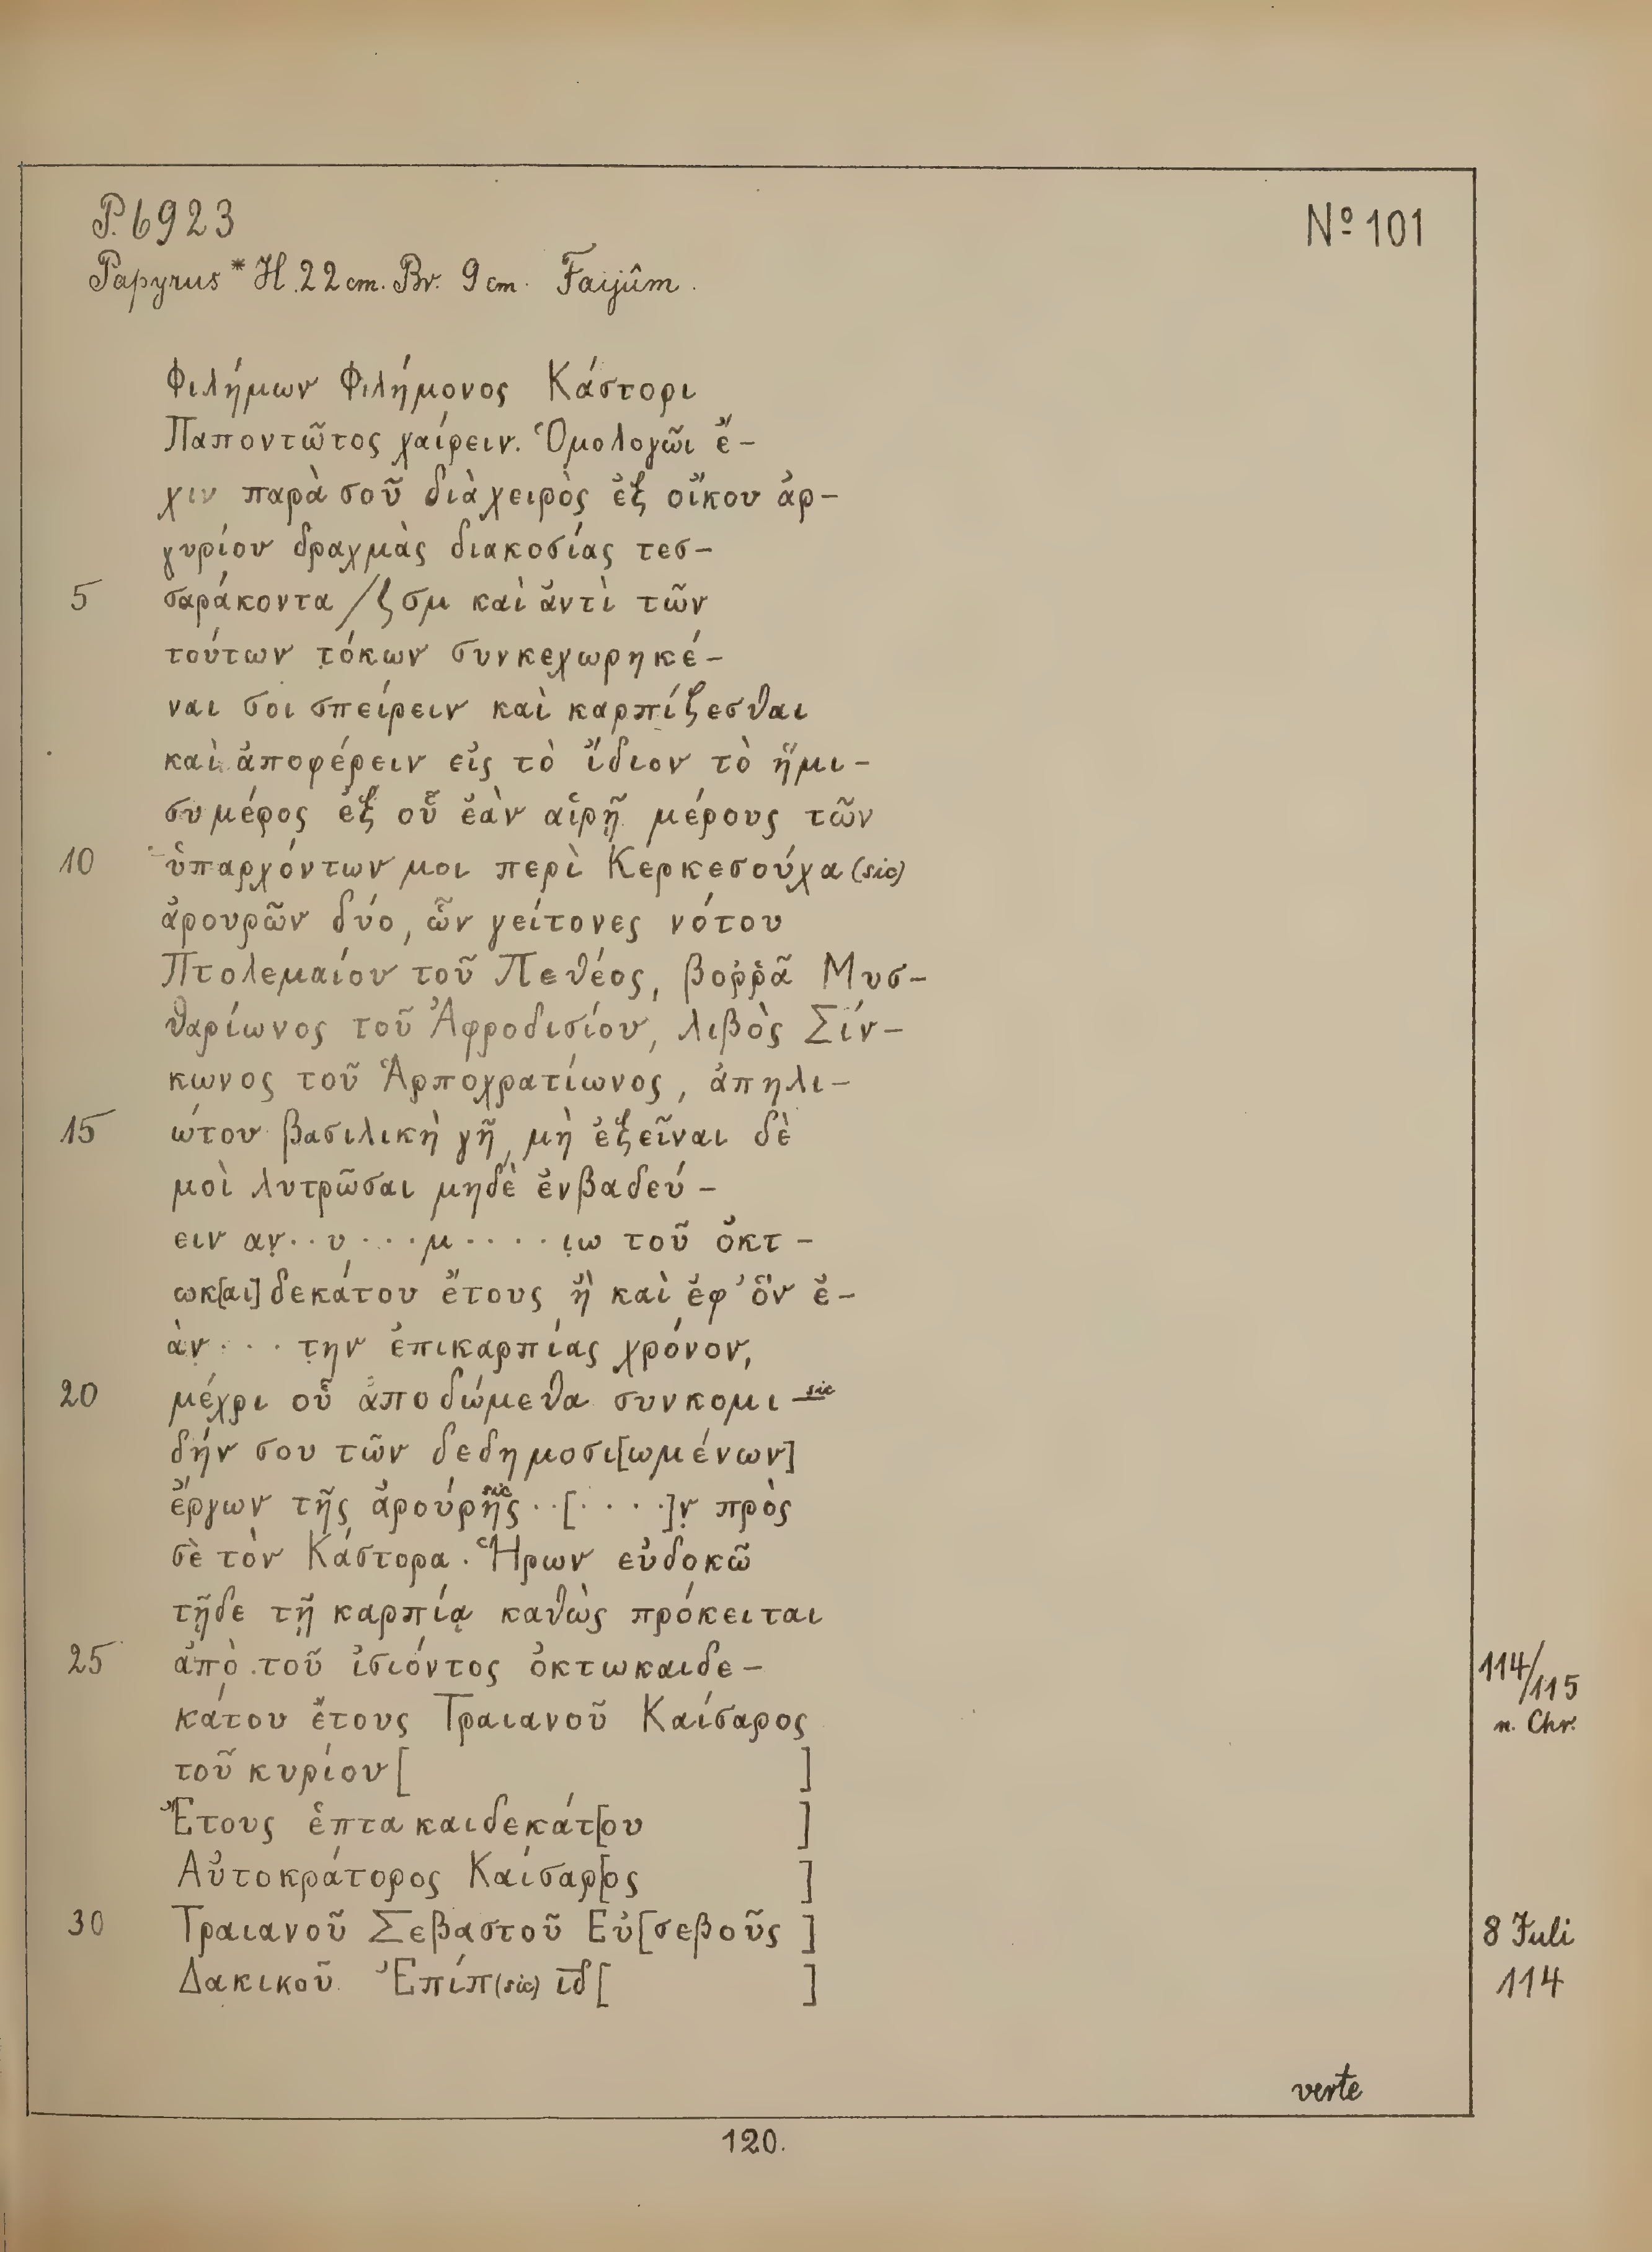 P. 6923
Nº 101
Papyrus * H. 22 cm. Br. 9 cm. Faijûm.
Φιλήμων Φιλήμονος Κάστορι
Παποντῶτος χαίρειν. Ὁμολογῶι ἔ-
χιν παρὰ σοῦ διὰ χειρὸς ἐξ οἴκου ἀρ-
γυρίου δραχμὰς διακοσίας τεσ-
5 σαράκοντα /ς σμ καὶ ἀντὶ τῶν
τούτων τ̣όκων συνκεχωρηκέ-
ναι σοι σπείρειν καὶ καρπίζεσθαι
καὶ ἀποφέρειν εἰς τὸ ἴδιον τὸ ἥμι-
συ μέρος ἐξ οὗ ἐὰν αἱρῇ μέρους τῶν
10 ὑπαρχόντων μοι περὶ Κερκεσούχα (sic)
ἀρουρῶν δύο, ὧν γείτονες νότου
Πτολεμαίου τοῦ Πεθέος, βοῤῥᾶ Μυσ-
θαρίωνος τοῦ Ἀφροδισίου, λιβὸς Σίν-
κωνος τοῦ Ἁρποχρατίωνος, ἀπηλι-
15 ώτου βασιλικὴ γῆ, μὴ ἐξεῖναι δὲ
μοὶ λυτρῶσαι μηδὲ ἐνβαδεύ-
ειν αν̣··υ····μ····ι̣ω τοῦ ὀκτ-
ωκ[αι]δεκάτου ἔτους ἢ καὶ ἐφ’ ὃν ἐ-
ὰν̣···τ̣ην ἐπικαρπίας χρόνον,
20 μέχρι οὗ ἀποδώμεθα συνκομι- sic
δήν σου τῶν δεδημοσι[ωμένων]
ἔργων τῆς ἀρούρης sic··[····]ν̣ πρὸς
σὲ τὸν Κάστορα. Ἥρων εὐδοκῶ
τῇδε τῇ καρπίᾳ καθὼς πρόκειται
25 ἀπὸ τοῦ ἰσιόντος ὀκτωκαιδε- 114/115
κάτου ἔτους Τραιανοῦ Καίσαρος n. Chr.
τοῦ κυρίου [ ]
Ἔτους ἑπτακαιδεκάτ[ου ]
Αὐτοκράτορος Καίσαρ[ος ]
30 Τραιανοῦ Σεβαστοῦ Εὐ[σεβοῦς ] 8 Juli
Δακικοῦ Ἐπίπ (sic) ι̅δ̅ [ ] 114
verte
120.